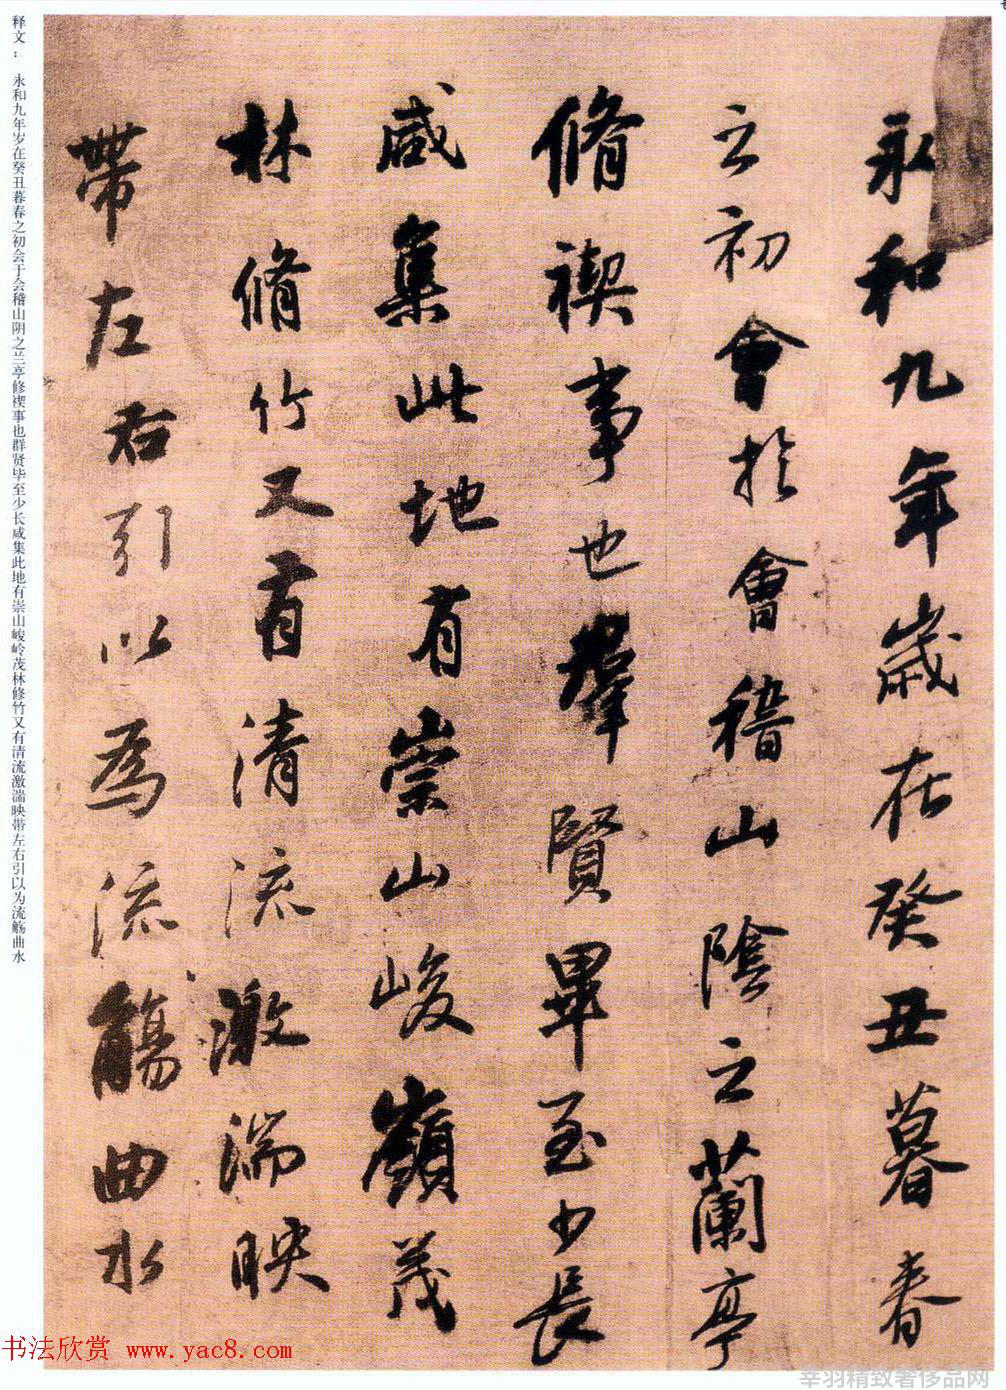 永和九年歲在癸丑暮春
之初會於會稽山陰之蘭亭
脩禊事也羣賢畢至少長
咸集此地有崇山峻嶺茂
林脩竹又有清流激湍映
帶左右引以為流觴曲水
释文： 永和九年岁在癸丑暮春之初会于会稽山阴之兰亭修禊事也群贤毕至少长咸集此地有崇山峻岭茂林修竹又有清流激湍映带左右引以为流觞曲水
书法欣赏 www.yac8.com
辛羽精致奢侈品网